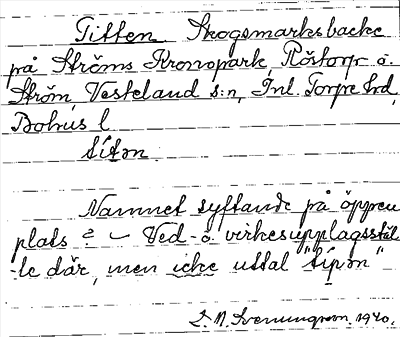 Titten Skogsmarksbacke
på Ströms Kronopark, Röstorp o.
Ström, Vesteland s:n, Inl. Torpe hd,
Bohus l.
títən
Namnet syftande på öppen
plats? – Ved- o. virkesupplagsstäl-
le där, men icke uttal "típən"
1940.